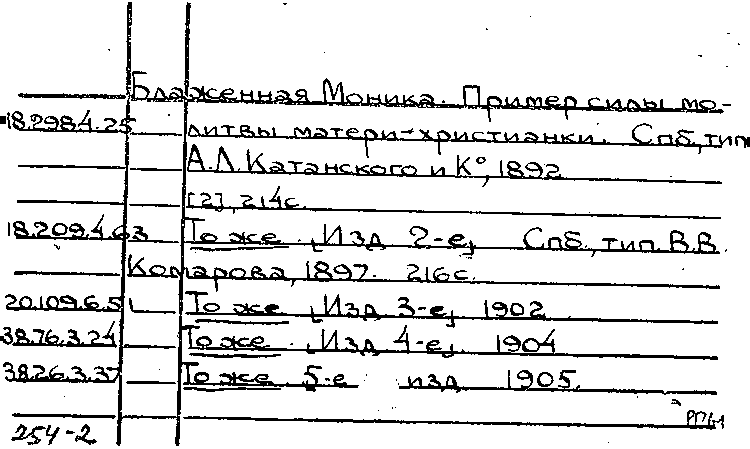 Блаженная Моника. Пример силы мо-
18.298.4.25 литвы матери-христианки. Спб, тип
А.Л. Катанского и К°, 1892
[2], 214с.
18.209.4.63 То же [Изд 2-е] Спб, тип. В.В.
Комарова, 1897. 216с.
20.109.6.51 То же [Изд 3-е] 1902
38.76.3.24 То же [Изд 4-е]. 1904
38.26.3.37 То же 5-е изд 1905.
254-2